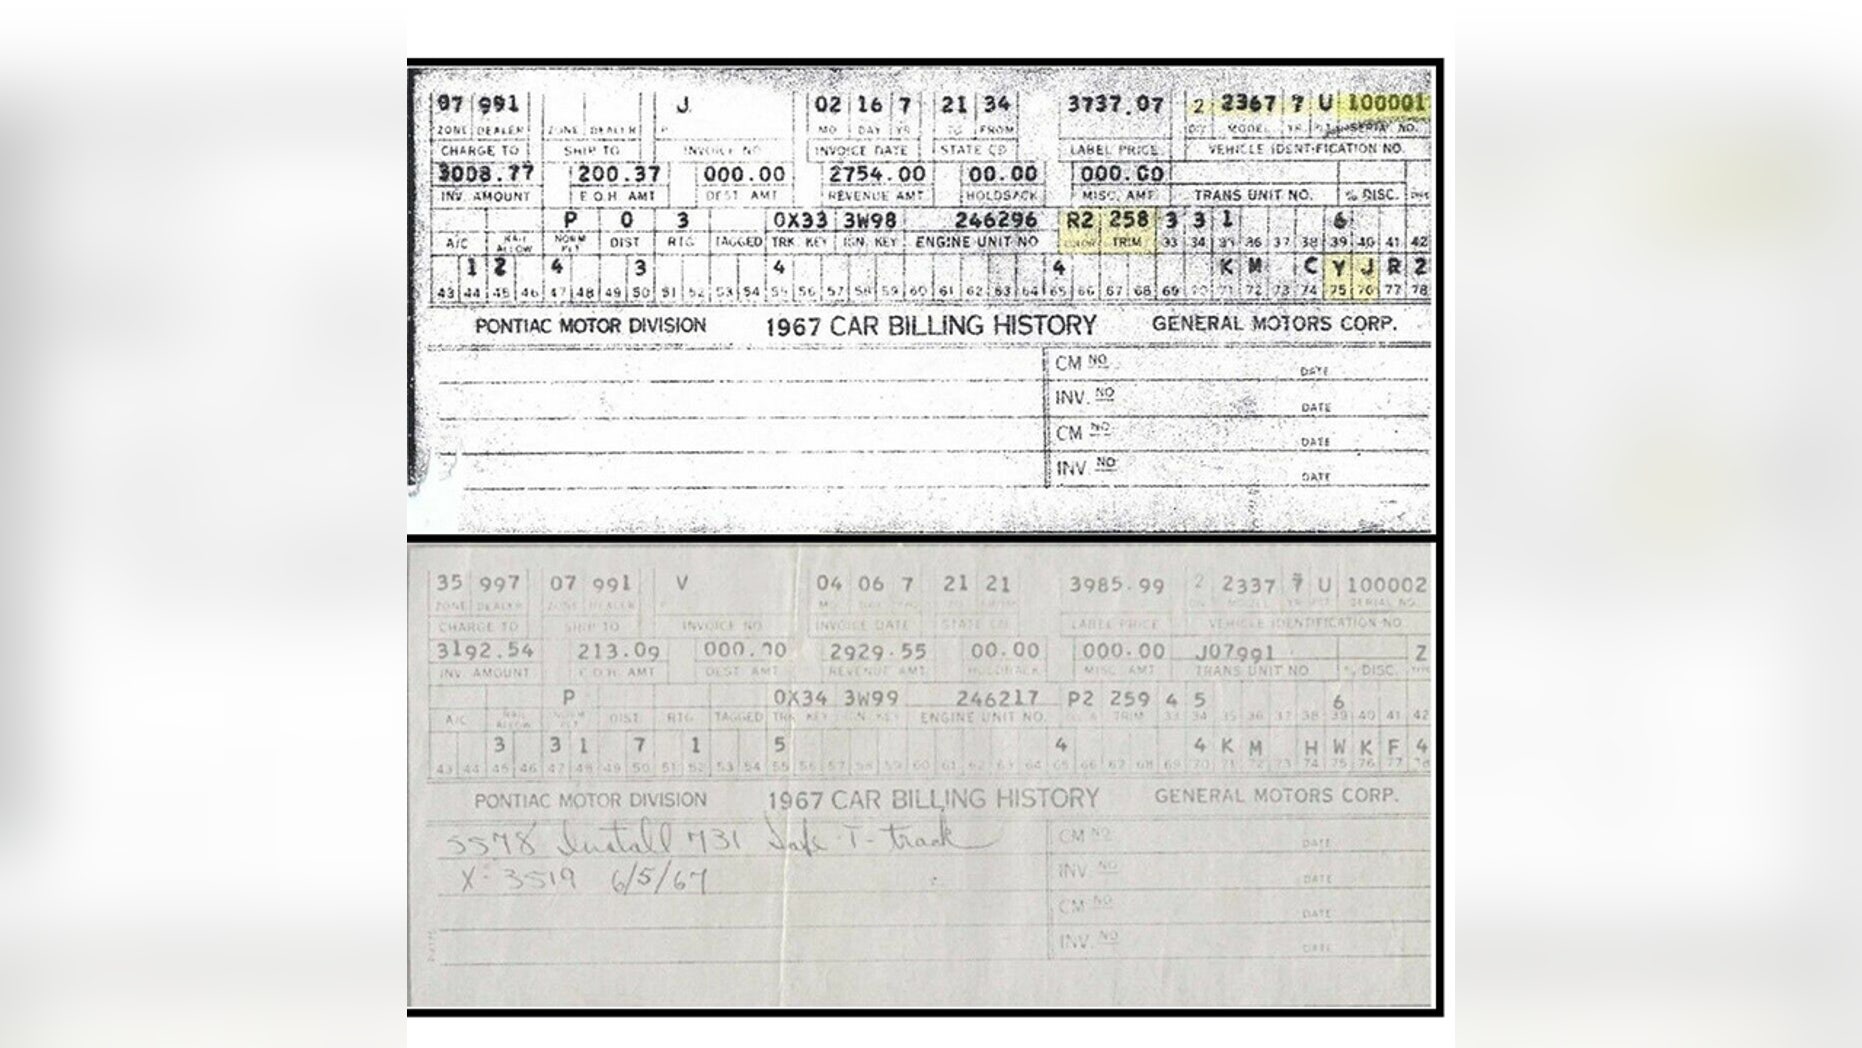 07 991 J 02 16 7 21 34 3737.07 2 2367 7 U 100001
ZONE DEALER ZONE DEALER MO DAY YR TO FROM MODEL YR SERIAL NO.
CHARGE TO SHIP TO INVOICE NO INVOICE DATE STATE CD LABEL PRICE VEHICLE IDENTIFICATION NO.
3008.77 200.37 000.00 2754.00 00.00 000.00
INV. AMOUNT E.O.H. AMT DEST AMT REVENUE AMT HOLDBACK MISC. AMT TRANS UNIT NO. % DISC.
P 0 3 0X33 3W98 246296 R2 258 3 3 1 6
A/C RAIL ALLOW NORM PLT DIST RTG TAGGED TRK. KEY IGN. KEY ENGINE UNIT NO COLOR TRIM 33 34 35 36 37 38 39 40 41 42
1 2 4 3 4 4 K M C Y J R 2
43 44 45 46 47 48 49 50 51 52 53 54 55 56 57 58 59 60 61 62 63 64 65 66 67 68 69 70 71 72 73 74 75 76 77 78
PONTIAC MOTOR DIVISION 1967 CAR BILLING HISTORY GENERAL MOTORS CORP.
CM NO. DATE
INV. NO DATE
CM NO. DATE
INV. NO DATE
35 997 07 991 V 04 06 7 21 21 3985.99 2 2337 7 U 100002
ZONE DEALER ZONE DEALER SERIAL NO.
CHARGE TO SHIP TO INVOICE NO INVOICE DATE STATE CD LABEL PRICE VEHICLE IDENTIFICATION NO
3192.54 213.09 000.00 2929.55 00.00 000.00 J07991 Z
INV. AMOUNT E.O.H. AMT DEST AMT REVENUE AMT HOLDBACK MISC AMT TRANS UNIT NO % DISC.
P 0X34 3W99 246217 P2 259 4 5 6
A/C RAIL ALLOW NORM PLT DIST RTG TAGGED TRK KEY IGN. KEY ENGINE UNIT NO. TRIM 33 34 35 36 37 38 39 40 41 42
3 3 1 7 1 5 4 4 K M H W K F 4
43 44 45 46 47 48 49 50 51 52 53 54 55 56 57 58 59 60 61 62 63 64 65 66 67 68 69 70 71 72 73 74 75 76 77 78
PONTIAC MOTOR DIVISION 1967 CAR BILLING HISTORY GENERAL MOTORS CORP.
5578 Install 731 Safe-T-track
X-3519 6/5/67
CM NO. DATE
INV. NO DATE
CM NO. DATE
INV. NO DATE